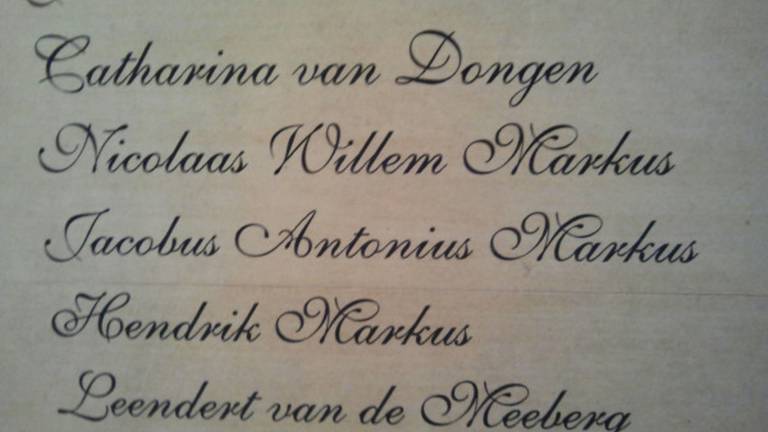 Catharina van Dongen
Nicolaas Willem Markus
Jacobus Antonius Markus
Hendrik Markus
Leendert van de Meeberg